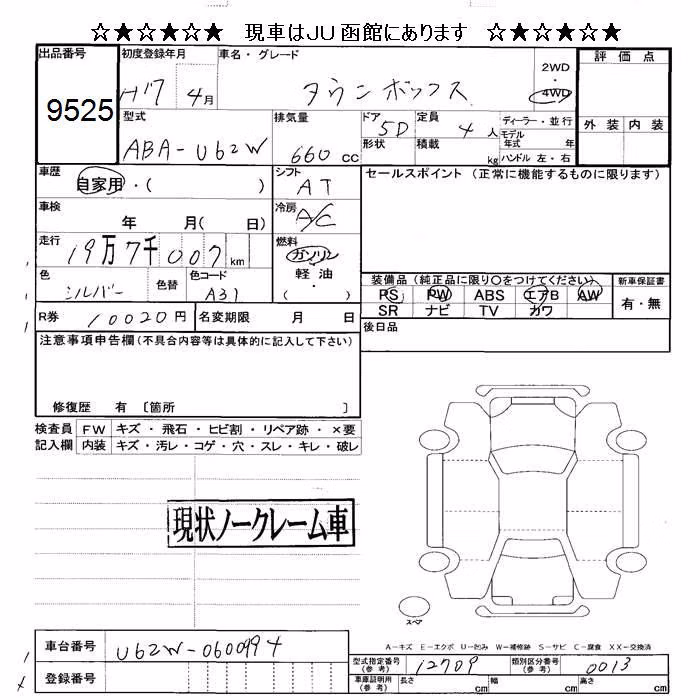 ☆★☆★☆★ 現車はJU函館にあります ☆★☆★☆★
出品番号 初度登録年月 車名・グレード 2WD・4WD 評価点
9525 H17 4月 タウンボックス
外装 内装
型式 排気量 ドア 5D 定員 4人 ディーラー・並行
ABA-U62W 660cc 形状 積載 kg モデル年式 年
ハンドル 左・右
車歴 自家用・( ) シフト AT セールスポイント (正常に機能するものに限ります)
車検 年 月( 日) 冷房 A/C
走行 19万7千007km 燃料 ガソリン
軽油・( )
色 シルバー 色替 色コード A31
装備品(純正品に限り○をつけてください) 新車保証書
PS PW ABS エアB AW 有・無
SR ナビ TV カワ
R券 10020円 名変期限 月 日 後日品
注意事項申告欄(不具合内容等は具体的に記入して下さい)
修復歴 有 〔箇所 〕
検査員 FW キズ・飛石・ヒビ割・リペア跡・×要
記入欄 内装 キズ・汚レ・コゲ・穴・スレ・キレ・破レ
現状ノークレーム車
スペア
A-キズ E-エクボ U-凹み W-補修跡 S-サビ C-腐食 XX-交換済
車台番号 U62W-0600994
型式指定番号(参考) 12709 類別区分番号(参考) 0013
登録番号
車庫証明用(参考) 長さ cm 幅 cm 高さ cm